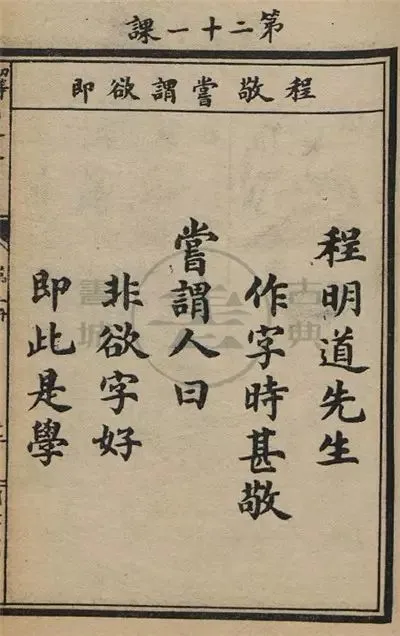 第二十一課
程敬嘗謂欲即
程明道先生
作字時甚敬
嘗謂人曰
非欲字好
即此是學
古典書城